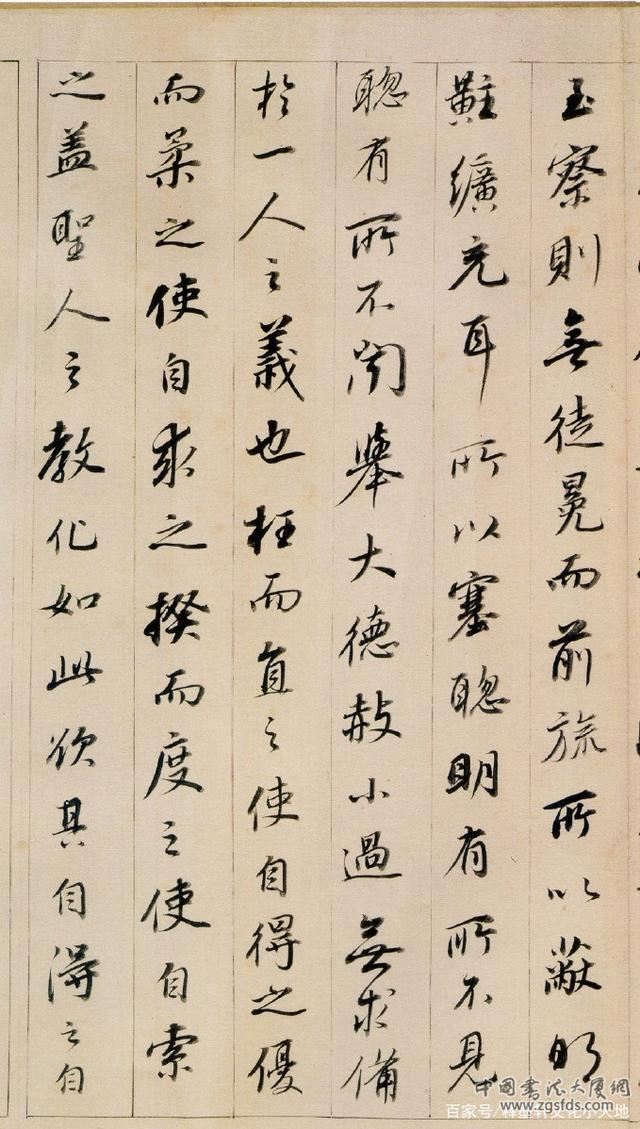 至察則無徒冕而前旒所以蔽明
黈纊充耳所以塞聰明有所不見
聰有所不聞舉大德赦小過無求備
於一人之義也枉而直之使自得之優
而柔之使自求之揆而度之使自索
之盖聖人之教化如此欲其自得之自
中國書法大厦網
www.zgsfds.com
百家号/释墨轩文化小天地